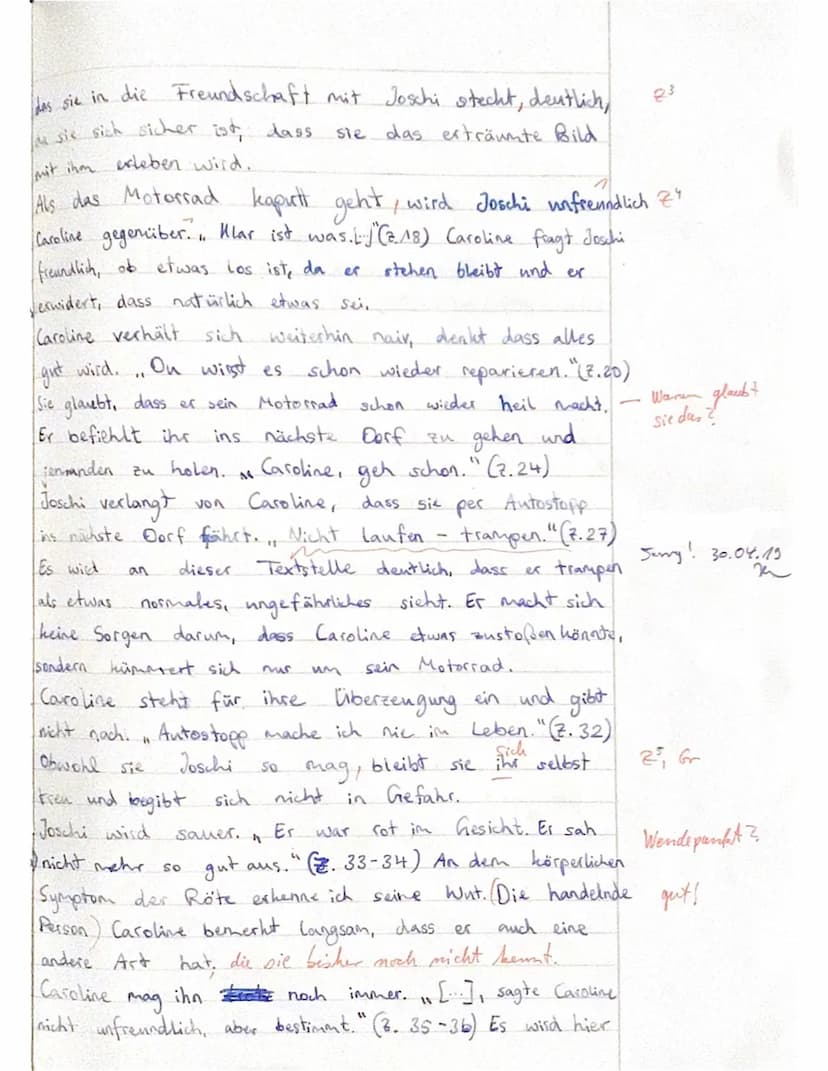 das sie in die Freundschaft mit Joschi stecht, deutlich, Z³
da sie sich sicher ist, dass sie das erträumte Bild
mit ihm erleben wird.
Als das Motorrad kaputt geht, wird Joschi unfreundlich Z⁴
Caroline gegenüber. „Klar ist was.[...]“(Z.18) Caroline fragt Joschi
freundlich, ob etwas los ist, da er stehen bleibt und er
erwidert, dass natürlich etwas sei.
Caroline verhält sich weiterhin naiv, denkt dass alles
gut wird. „Du wirst es schon wieder reparieren.“(Z.20)
Sie glaubt, dass er sein Motorrad schon wieder heil macht. – Warum glaubt
sie das?
Er befiehlt ihr ins nächste Dorf zu gehen und
jemanden zu holen. „Caroline, geh schon.“ (Z.24)
Joschi verlangt von Caroline, dass sie per Autostopp
ins nächste Dorf fährt. „Nicht laufen – trampen.“(Z.27)
30.04.19
Es wird an dieser Textstelle deutlich, dass er trampen
als etwas normales, ungefährliches sieht. Er macht sich
keine Sorgen darum, dass Caroline etwas zustoßen könnte,
sondern kümmert sich nur um sein Motorrad.
Caroline steht für ihre Überzeugung ein und gibt
nicht nach. „Autostopp mache ich nie im Leben.“(Z.32)
sich
Obwohl sie Joschi so mag, bleibt sie ihr selbst Z⁵, Gr
treu und begibt sich nicht in Gefahr.
Joschi wird sauer. „Er war rot im Gesicht. Er sah Wendepunkt?
nicht mehr so gut aus.“ (Z. 33-34) An dem körperlichen
Symptom der Röte erkenne ich seine Wut. (Die handelnde gut!
Person) Caroline bemerkt langsam, dass er auch eine
andere Art hat, die sie bisher noch nicht kennt.
Caroline mag ihn noch immer. „[...], sagte Caroline
nicht unfreundlich, aber bestimmt.“ (Z. 35-36) Es wird hier